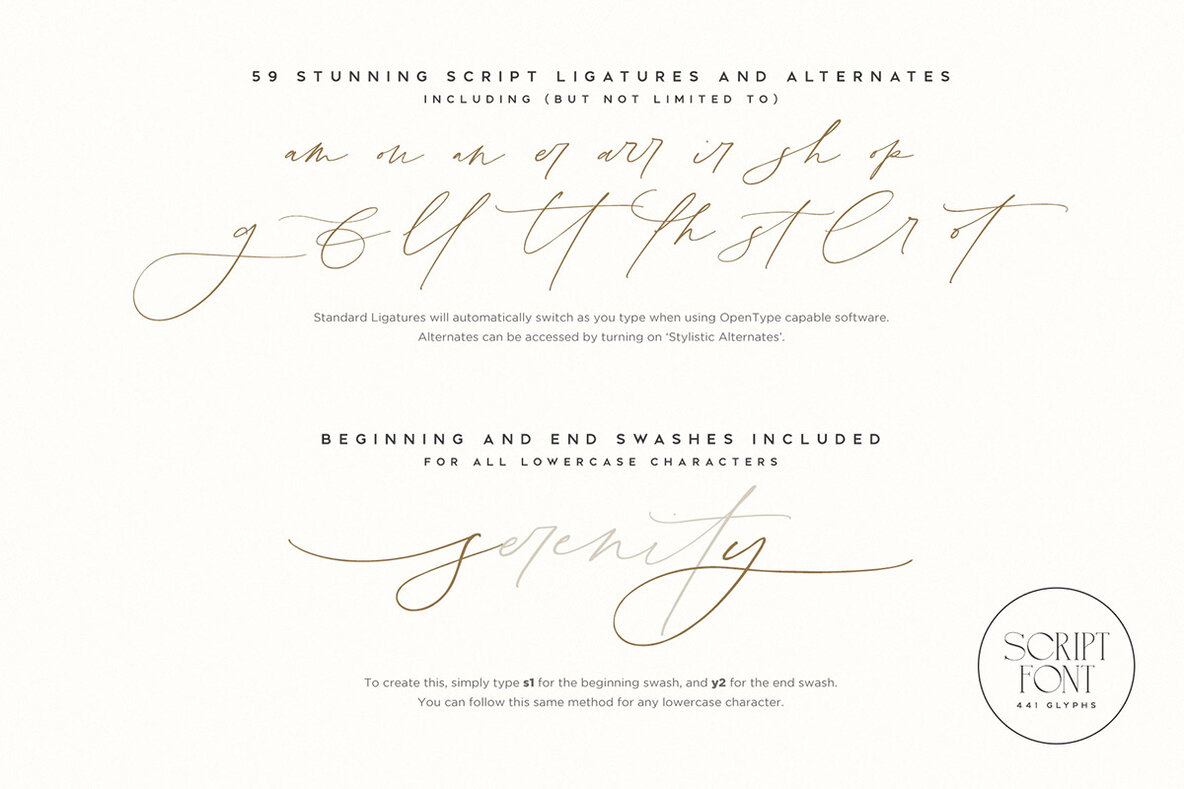 59 STUNNING SCRIPT LIGATURES AND ALTERNATES
INCLUDING (BUT NOT LIMITED TO)
am ou an er arr ir sh op
g ll tt th st er ot
Standard Ligatures will automatically switch as you type when using OpenType capable software.
Alternates can be accessed by turning on ‘Stylistic Alternates’.
BEGINNING AND END SWASHES INCLUDED
FOR ALL LOWERCASE CHARACTERS
serenity
To create this, simply type s1 for the beginning swash, and y2 for the end swash.
You can follow this same method for any lowercase character.
SCRIPT
FONT
441 GLYPHS